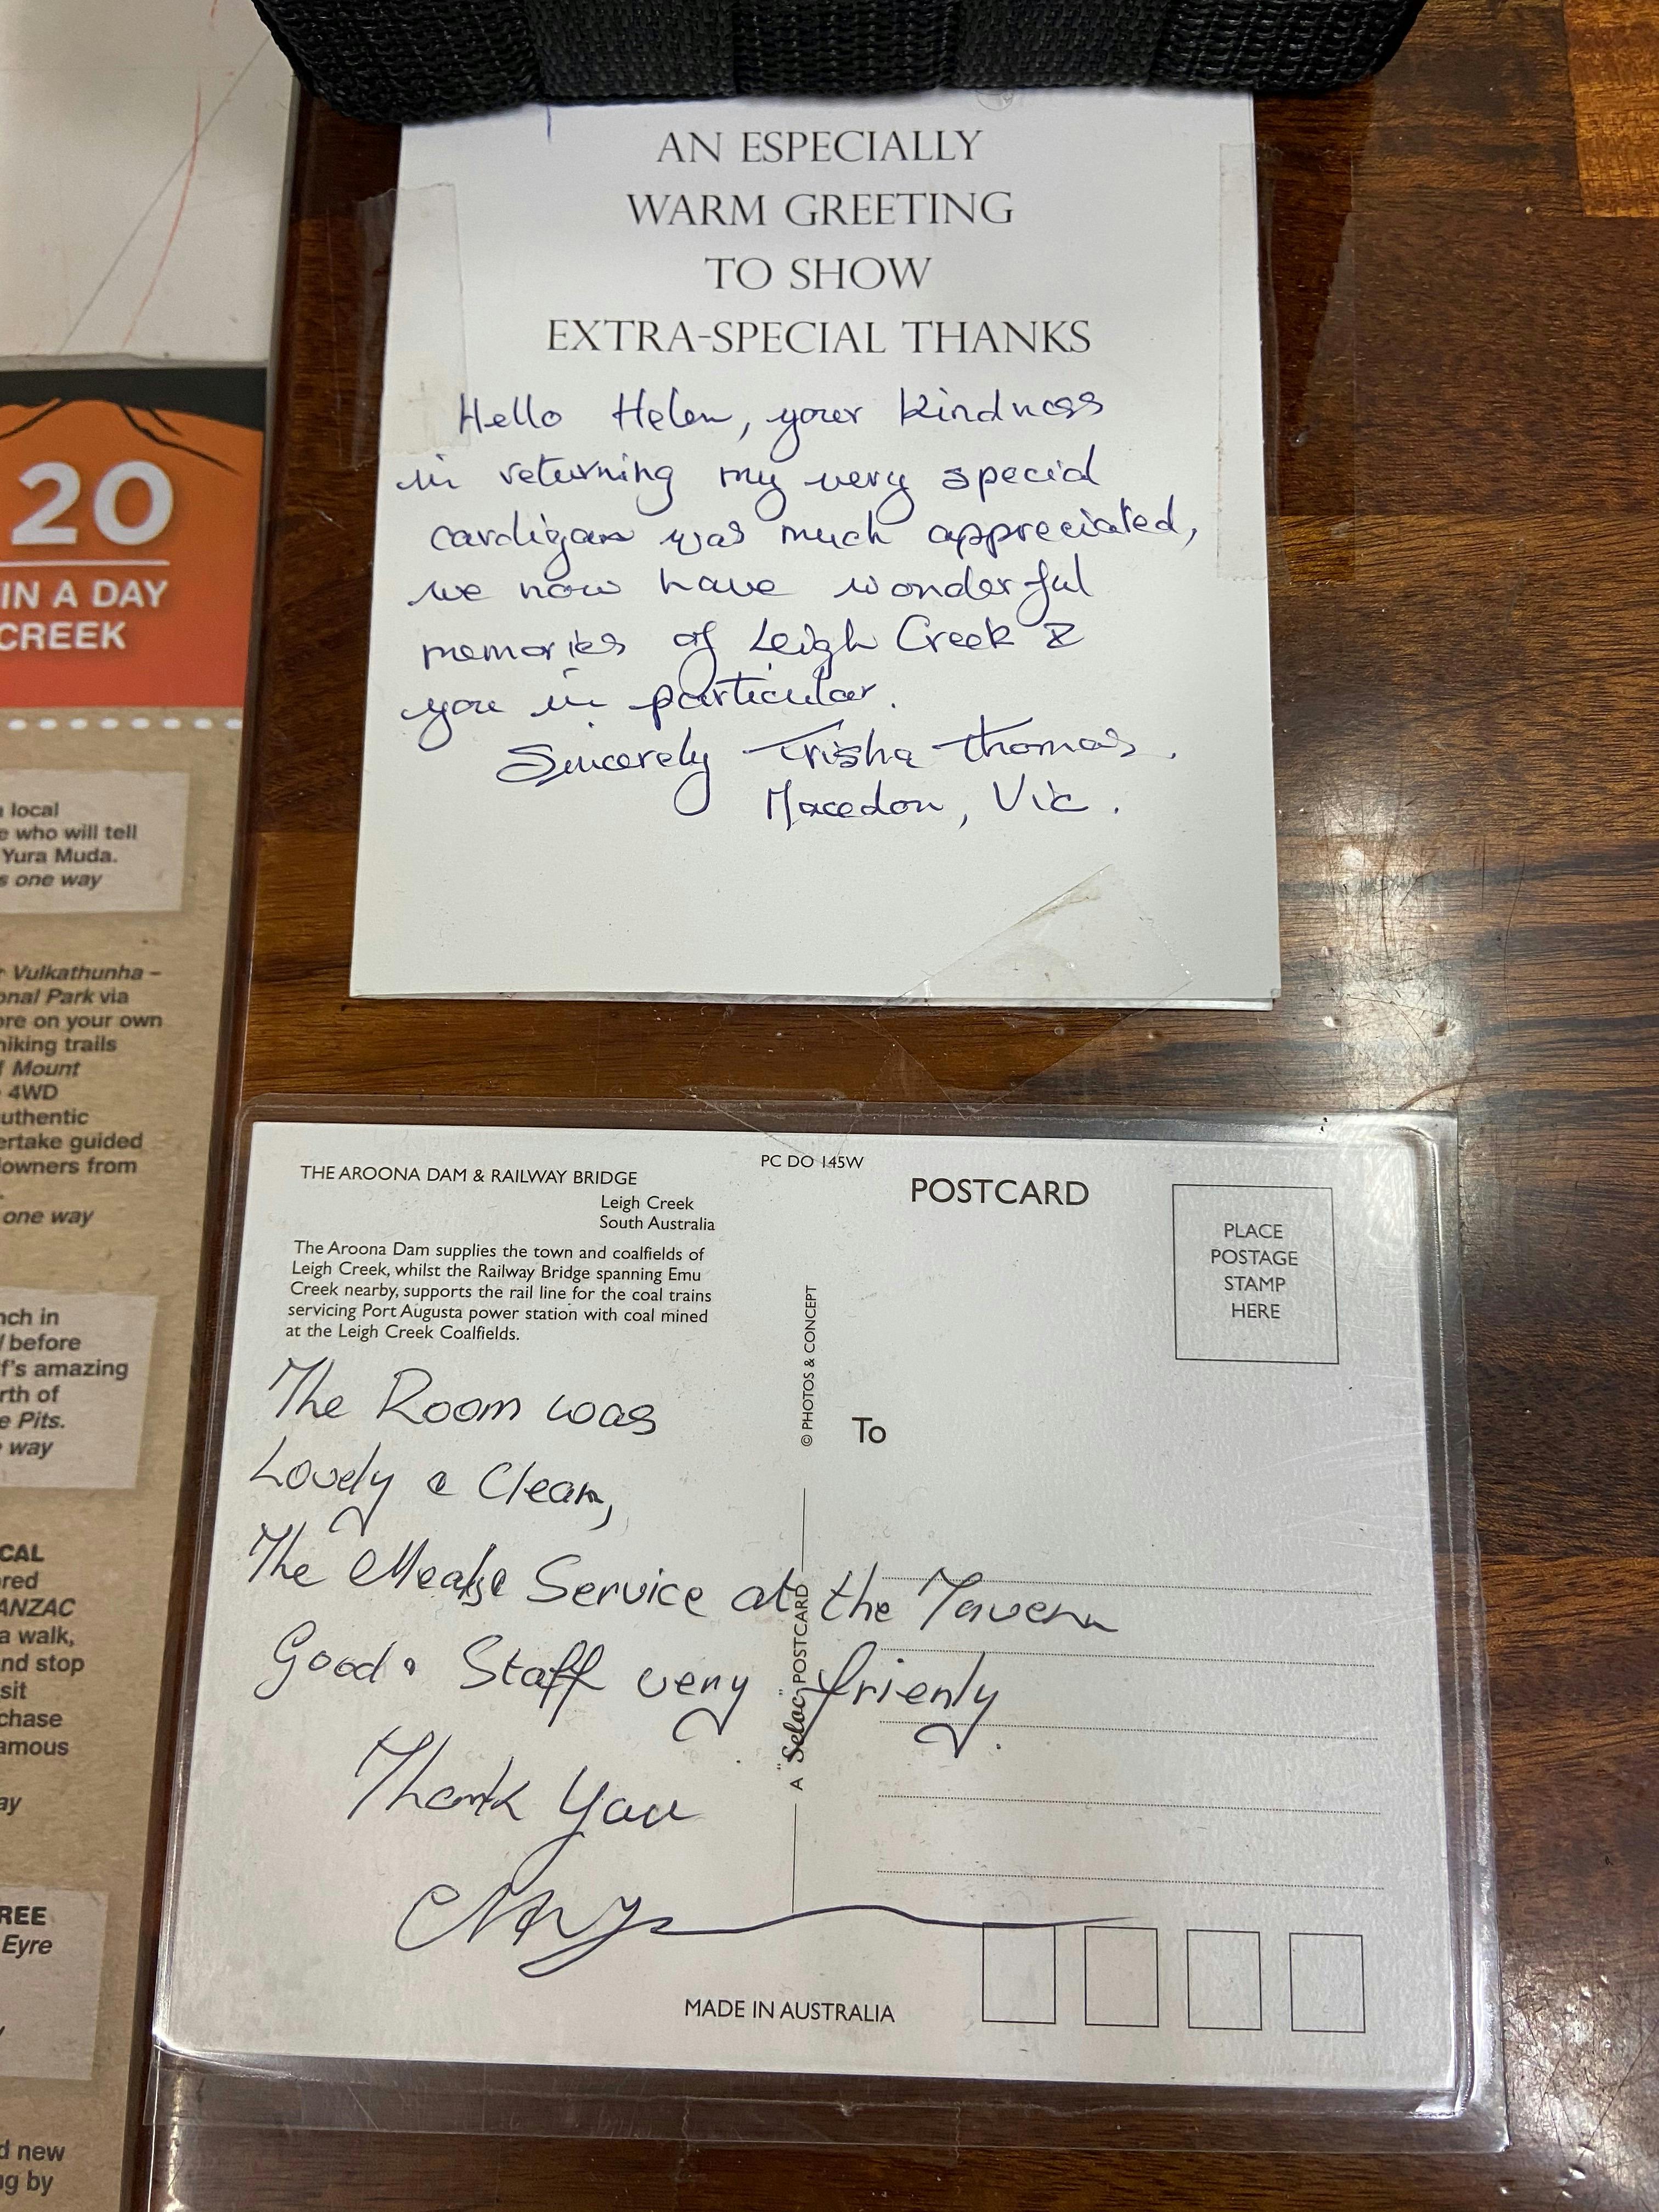 AN ESPECIALLY
WARM GREETING
TO SHOW
EXTRA-SPECIAL THANKS
Hello Helen, your kindness
in returning my very special
cardigan was much appreciated,
we now have wonderful
memories of Leigh Creek &
you in particular.
Sincerely Trisha Thomas.
Macedon, Vic.
20
IN A DAY
CREEK
local
who will tell
Yura Muda.
one way
Vulkathunha –
onal Park via
ore on your own
hiking trails
Mount
4WD
uthentic
ertake guided
owners from
one way
nch in
before
f's amazing
rth of
e Pits.
way
CAL
ored
ANZAC
a walk,
nd stop
sit
chase
amous
ay
REE
Eyre
d new
ng by
THE AROONA DAM & RAILWAY BRIDGE
Leigh Creek
South Australia
The Aroona Dam supplies the town and coalfields of
Leigh Creek, whilst the Railway Bridge spanning Emu
Creek nearby, supports the rail line for the coal trains
servicing Port Augusta power station with coal mined
at the Leigh Creek Coalfields.
PC DO 145W
POSTCARD
PLACE
POSTAGE
STAMP
HERE
© PHOTOS & CONCEPT
To
A "Seloc" POSTCARD
The Room was
Lovely & Clean,
The Service at the Tavern
Good. Staff very frienly.
Thank You
MADE IN AUSTRALIA